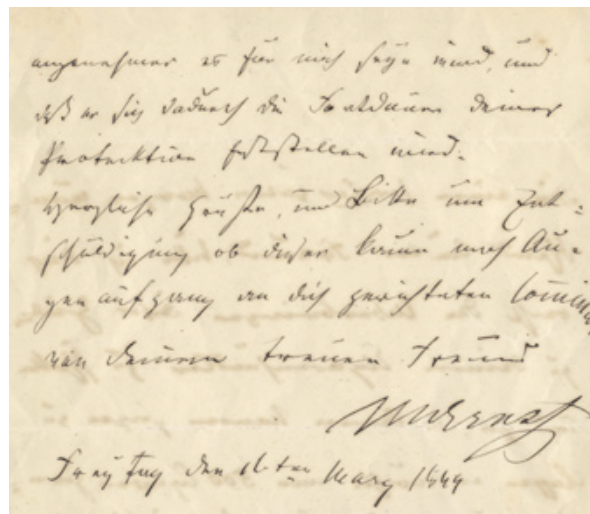 angenehmer es für mich seyn wird, und
daß er sich dadurch die Fortdauer deiner
Protecktion feststellen wird.
Herzliche Grüße, und Bitte um Ent=
schuldigung ob dieser kaum nach Au=
genaufgang an dich gerichteten
von deinem treuen Freund
HWErnst
Freytag den 16ten März 1849